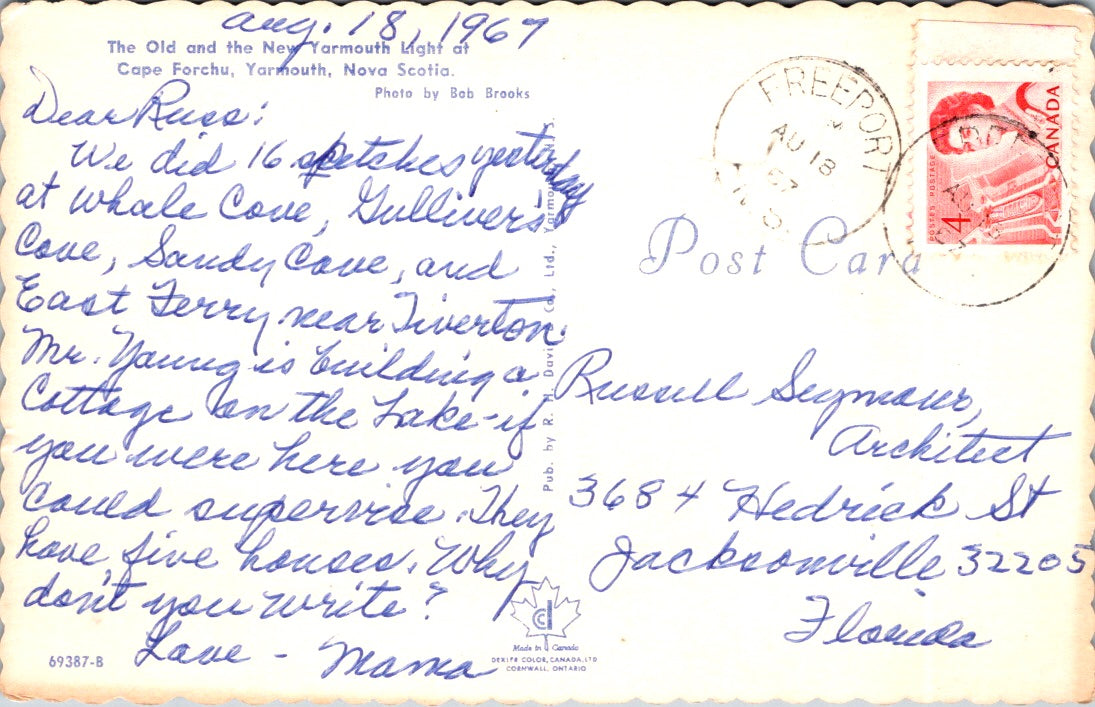 Aug. 18, 1967
The Old and the New Yarmouth Light at
Cape Forchu, Yarmouth, Nova Scotia.
Photo by Bob Brooks
Dear Russ:
We did 16 sketches yesterday
at Whale Cove, Gulliver's
Cove, Sandy Cove, and
East Ferry near Tiverton.
Mr. Young is building a
Cottage on the Lake - if
you were here you
could supervise. They
have five houses. Why
don't you write?
Love - Mama
69387-B
Pub. by R. H. Davis Co., Ltd., Yarmouth, N.S.
Made in Canada
DEXTER COLOR, CANADA, LTD
CORNWALL, ONTARIO
FREEPORT
AU 18
67
N.S.
POSTES POSTAGE
4
CANADA
Post Card
Russell Seymour,
Architect
3684 Hedrick St
Jacksonville 32205
Florida